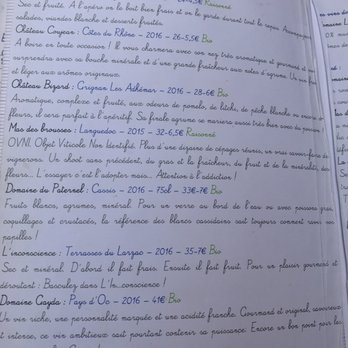 Sec et fruité. A l'apéro on le boit bien frais et on le garde durant tout le repas. Accompagne
salades, viandes blanches et desserts fruités.
Château Couyeau : Côtes du Rhône – 2016 – 26-5,5€ Bio
A boire en toute occasion ! Il vous charmera avec son nez très aromatique et gourmet et
surprendra avec sa bouche minérale et d'une grande fraîcheur aux notes d'agrume. Un vin
et léger aux arômes originaux.
Château Bizard : Grignan Les Adhémar – 2016 – 28-6€ Bio
Aromatique, complexe et fruité, aux odeurs de pomelo, de litchi, de pêche blanche ou
fleurs, il sera parfait à l'apéritif. Sa finale agrume se mariera aussi très bien avec du poisson !
Mas des brousses : Languedoc – 2015 – 32-6,5€ Raisonné
OVNI. Objet Viticole Non Identifié. Plus d'une dizaine de cépages réunis, un vrai savoir-faire de
vignerons. Un choot sans précédent, du gras et la fraîcheur, du fruit et de la minéralité, des
fleurs... L'essayer c'est l'adopter mais... Attention à l'addiction !
Domaine du Paternel : Cassis – 2016 – 75cl – 33€-7€ Bio
Fruits blancs, agrumes, minéral. Pour un verre au bord de l'eau ou avec poissons gras,
coquillages et crustacés, la référence des blancs cassidains sait toujours comment ravir nos
papilles !
L'inconscience : Terrasses du Larzac – 2016 – 35-7€ Bio
Sec et minéral. D'abord il fait frais. Ensuite il fait fruit. Pour un plaisir gourmand et
déroutant : Basculez dans L'In...conscience !
Domaine Gayda : Pays d'Oc – 2016 – 41€ Bio
Un vin riche, une personnalité marquée et une acidité franche. Gourmand et original, savoureux
et intense, ce vin ambitieux sait pourtant contenir sa puissance. Encore un bon point pour les